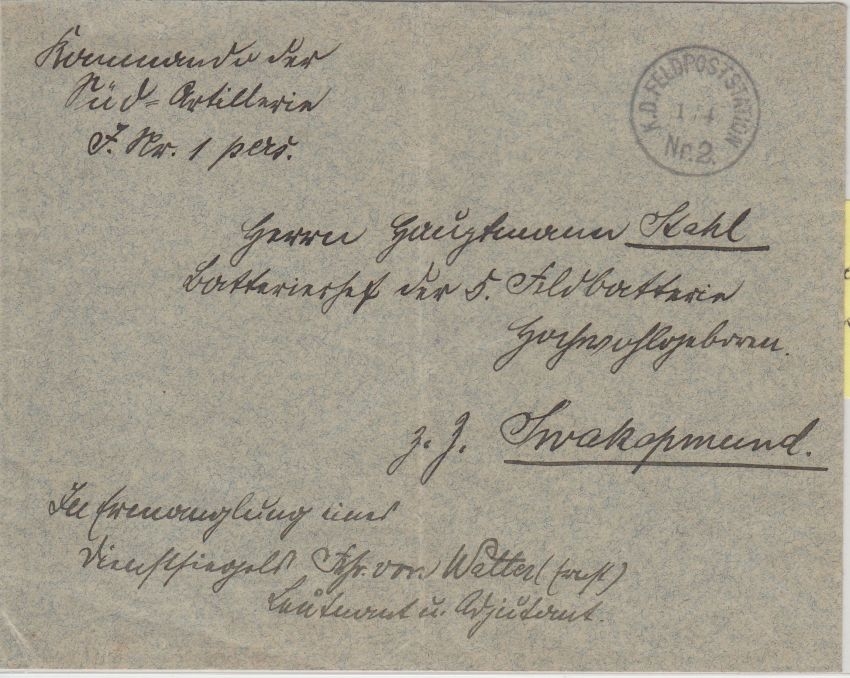 Kommando der
Süd-Artillerie
J. Nr. 1 pers.
K.D. FELDPOSTSTATION
1/4
Nr. 2.
Herrn Hauptmann Stahl
Batteriechef der 5. Feldbatterie
Hochwohlgeboren.
z. Z. Swakopmund.
In Ermanglung eines
Dienstsiegels Frhr. von Watter
Leutnant u. Adjutant.